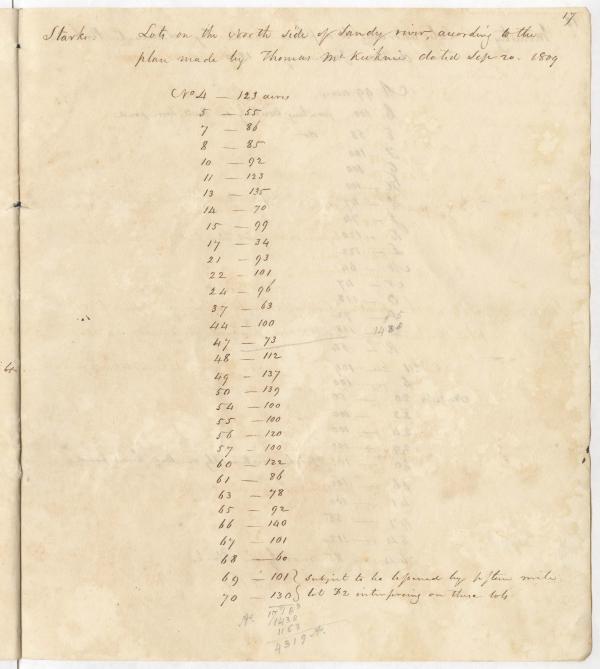 17
Starks. Lots on the North side of Sandy river, according to the
plan made by Thomas McKechnie dated Sep 20. 1809
No 4 — 123 acres
5 — 55
7 — 86
8 — 85
10 — 92
11 — 123
13 — 135
14 — 70
15 — 99
17 — 34
21 — 93
22 — 101
24 — 96
37 — 63
44 — 100
47 — 73
48 — 112
49 — 137
50 — 139
54 — 100
55 — 100
56 — 120
57 — 100
60 — 122
61 — 86
63 — 78
65 — 92
66 — 140
67 — 101
68 — 60
69 — 101 } subject to be lessened by fifteen mile
70 — 130 } lot D2 interfering on these lots
1438
1153
4319 A.